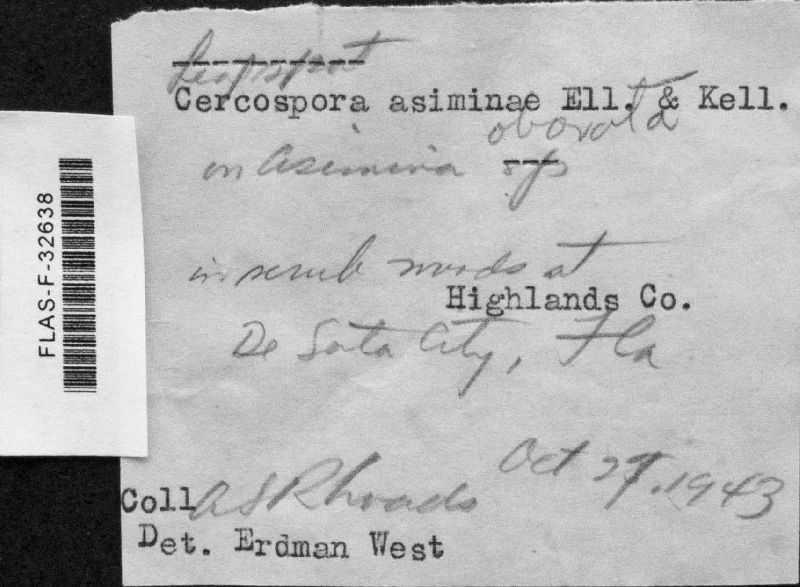 Leaf spot
Cercospora asiminae Ell. & Kell.
obovata
on Asimina sp
in scrub woods at
Highlands Co.
De Soto City, Fla
Oct 27, 1943
Coll A S Rhoads
Det. Erdman West
FLAS-F-32638